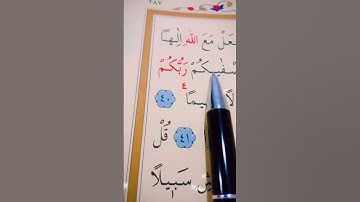 ٢٨٧
عَلْ مَعَ اللّٰهِ اِلٰهاً
صْفٰيكُمْ رَبُّكُمْ
يماً ﴿٤٠﴾
﴿٤١﴾ قُلْ
سَبٖيلاً